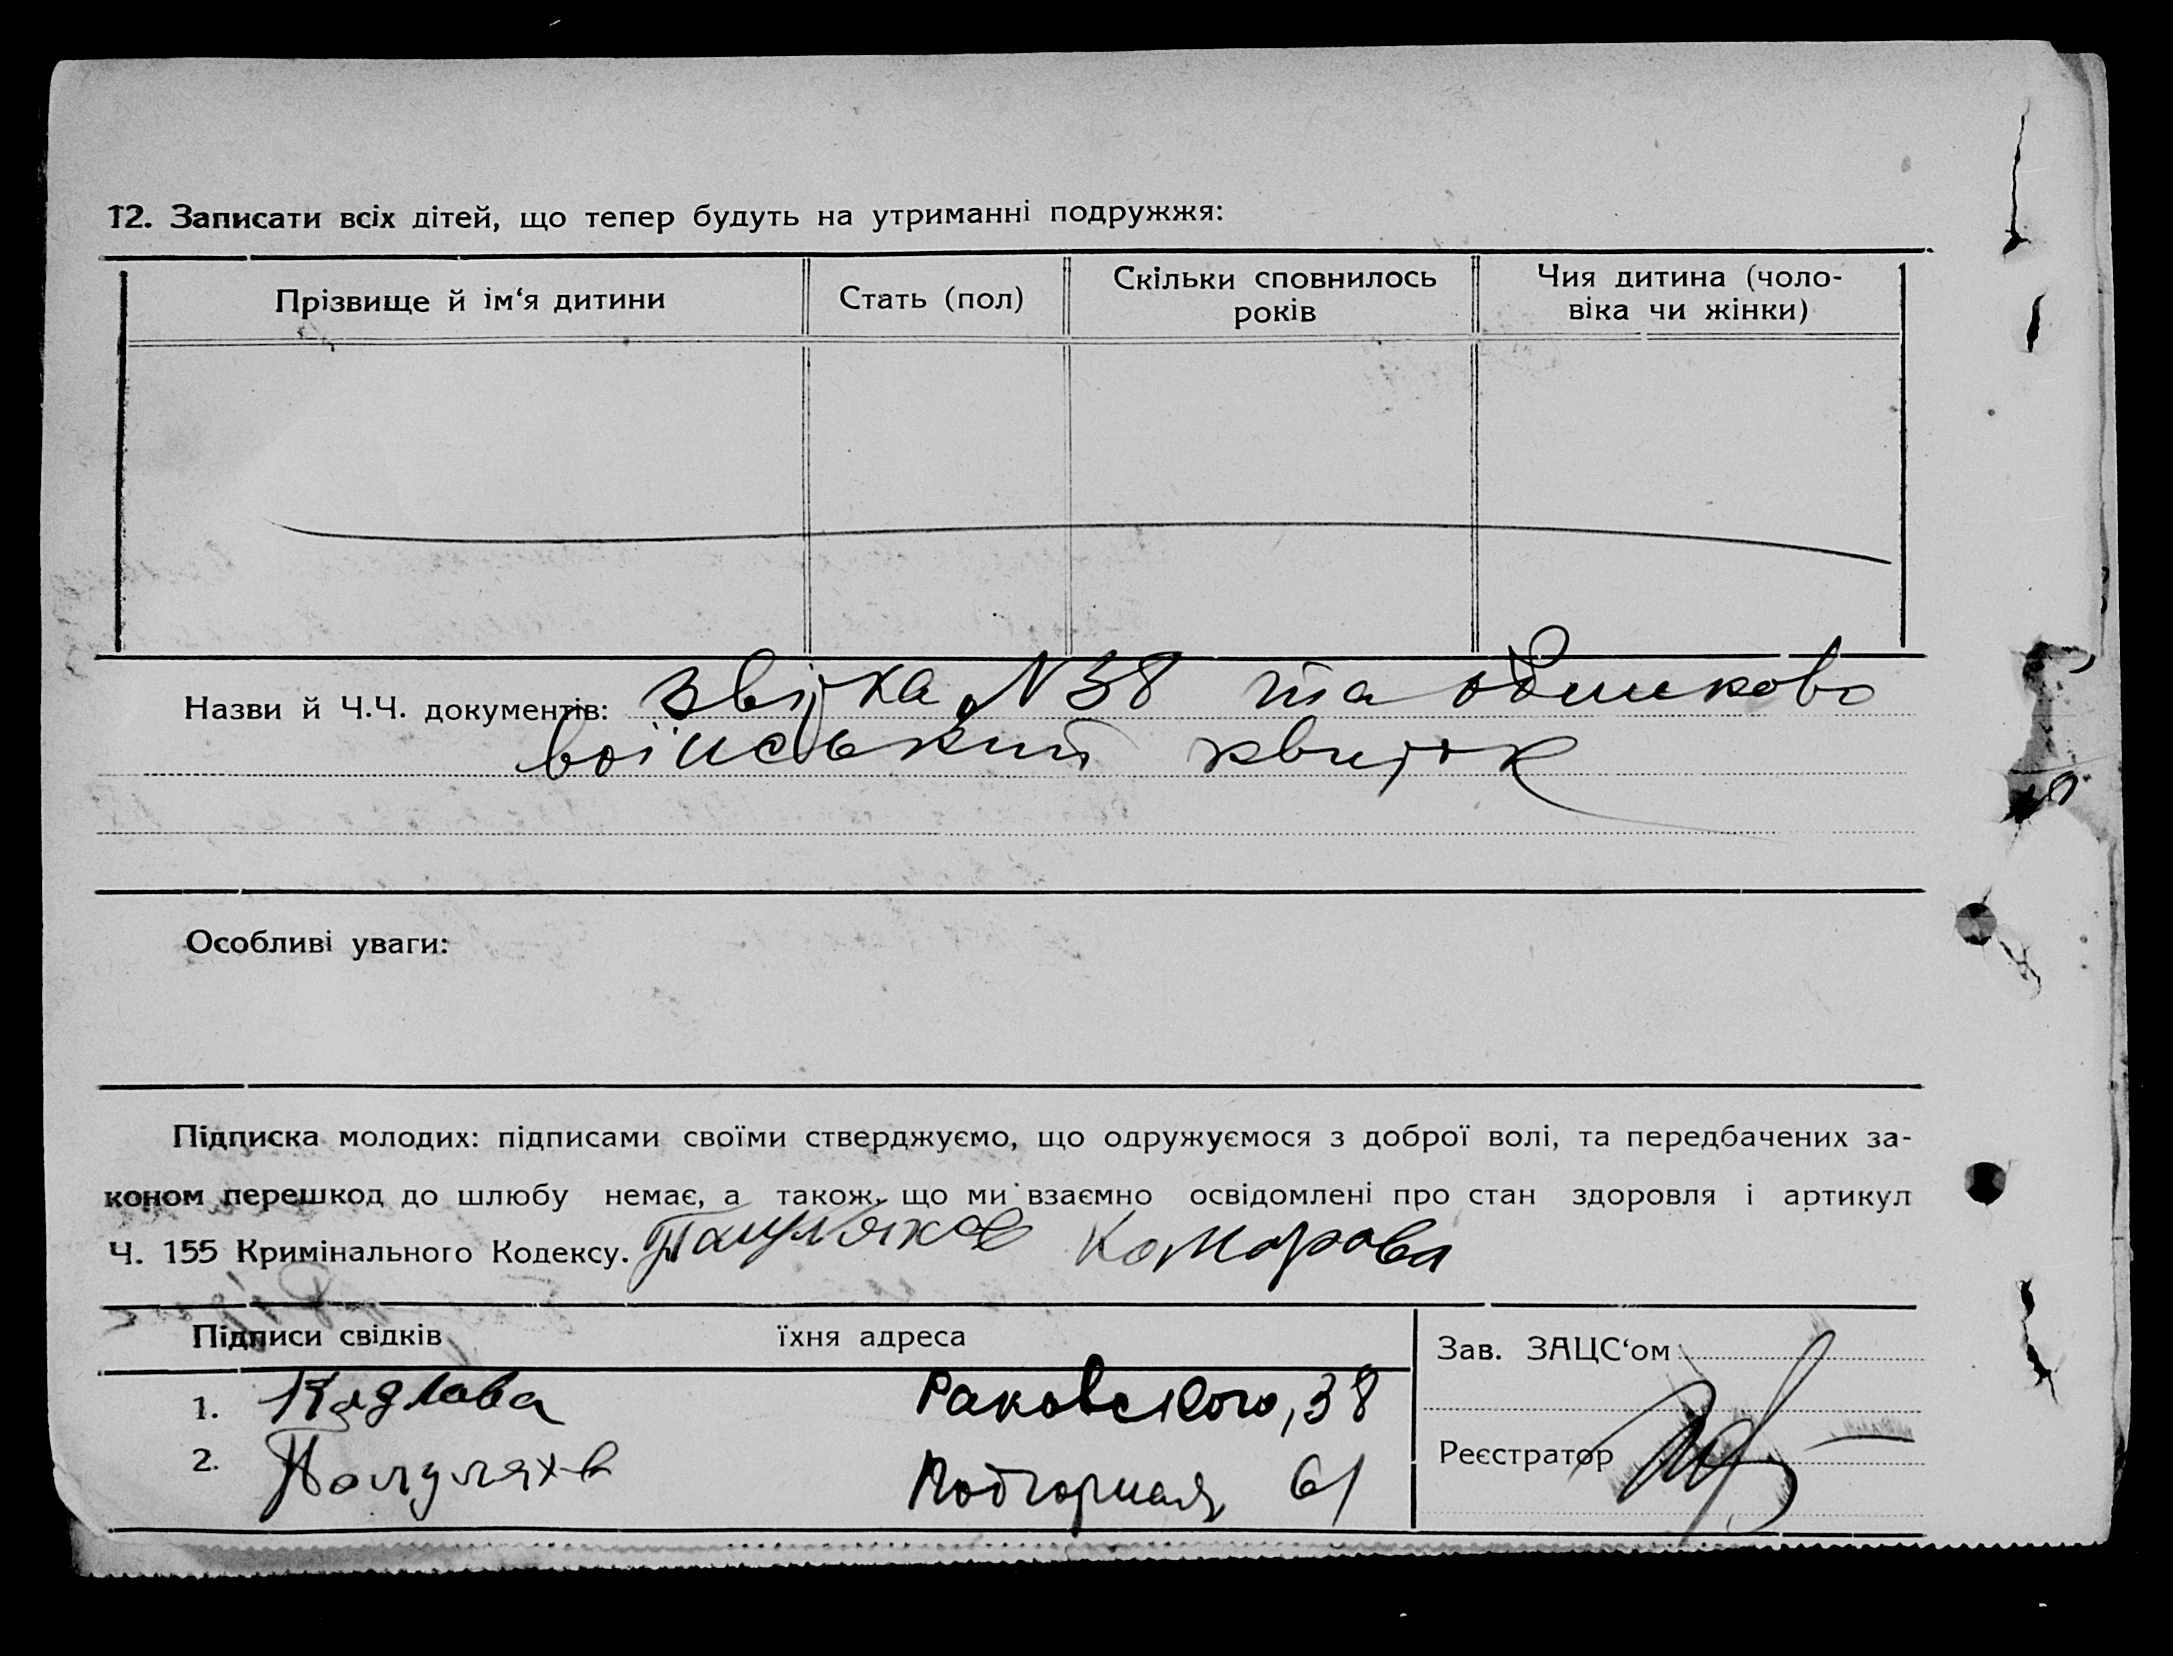 12. Записати всіх дітей, що тепер будуть на утриманні подружжя:
Прізвище й ім‘я дитини
Стать (пол)
Скільки сповнилось
років
Чия дитина (чоло-
віка чи жінки)
Назви й Ч.Ч. документів: звідка N 38 та
воїнський квиток
Особливі уваги:
Підписка молодих: підписами своїми стверджуємо, що одружуємося з доброї волі, та передбачених за-
коном перешкод до шлюбу немає, а також, що ми взаємно освідомлені про стан здоровля і артикул
Ч. 155 Кримінального Кодексу. Комарова
Підписи свідків їхня адреса
Зав. ЗАЦС‘ом
1. Раковского, 38
2. Подгорная 61
Реєстратор